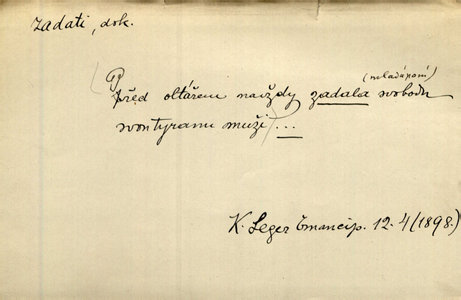 zadati, dok.
(mladá paní)
Před oltářem navždy zadala svobodu
svou tyranu muži ...
K. Leger Emancip. 12. 4 (1898.)